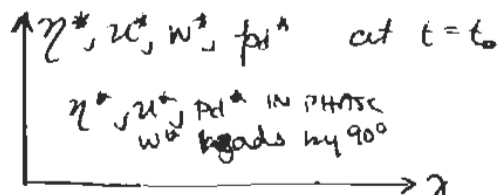 η*, u*, w*, pd* at t = t₀
η*, u*, pd* IN PHASE
w* leads by 90°
x